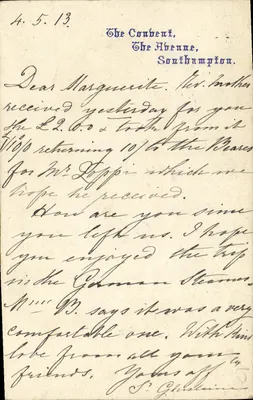 4.5.13
The Convent,
The Avenue,
Southampton.
Dear Marguerite. Rev. Mother
received yesterday for you
the £2.0.0 & took from it
10/0 returning 10/ to the Bearer
for Mr. Zoppi which we
hope he received.
How are you since
you left us. I hope
you enjoyed the trip
in the German Steamer
B. says it was a very
comfortable one. With kind
love from all your
friends. Yours aff